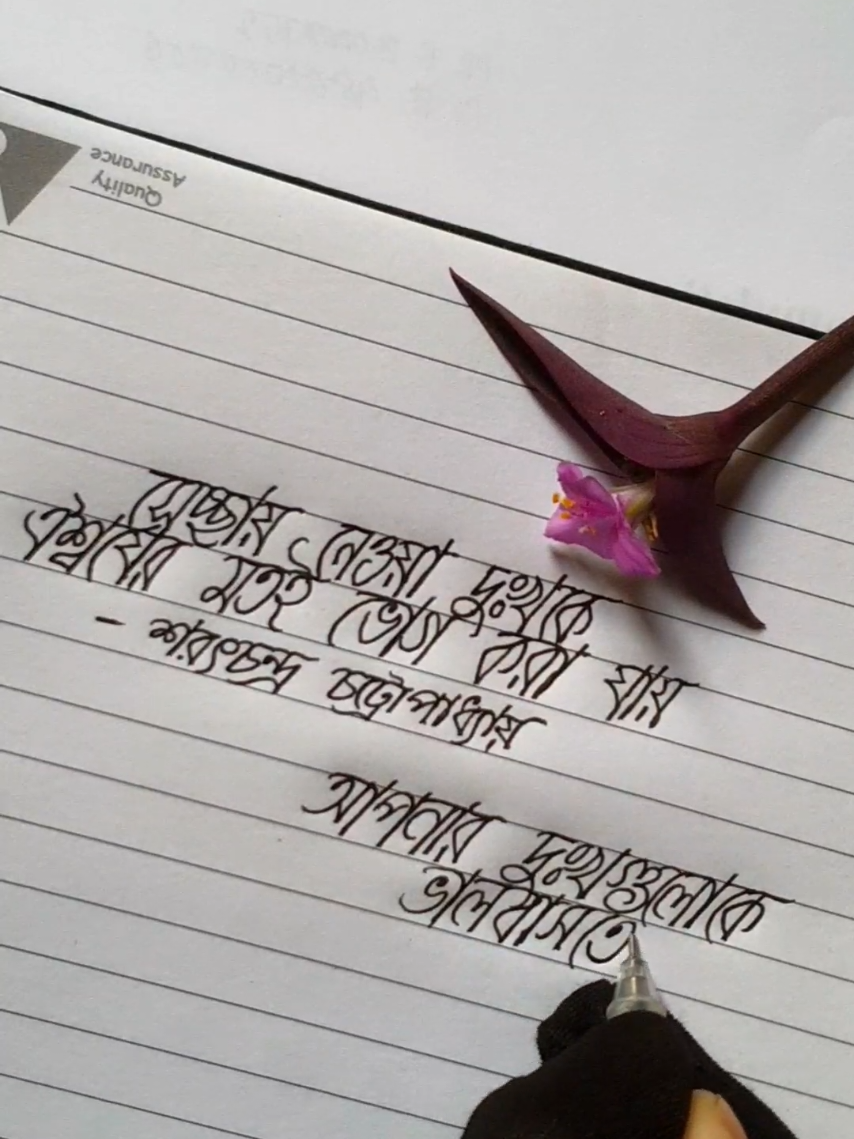 Quality
Assurance
স্বেচ্ছায় নেওয়া দুঃখকে
ঐশ্বর্যের মতই ভোগ করা যায়
- শরৎচন্দ্র চট্টোপাধ্যায়
আপনার দুঃখগুলোকে
ভালবাসতে